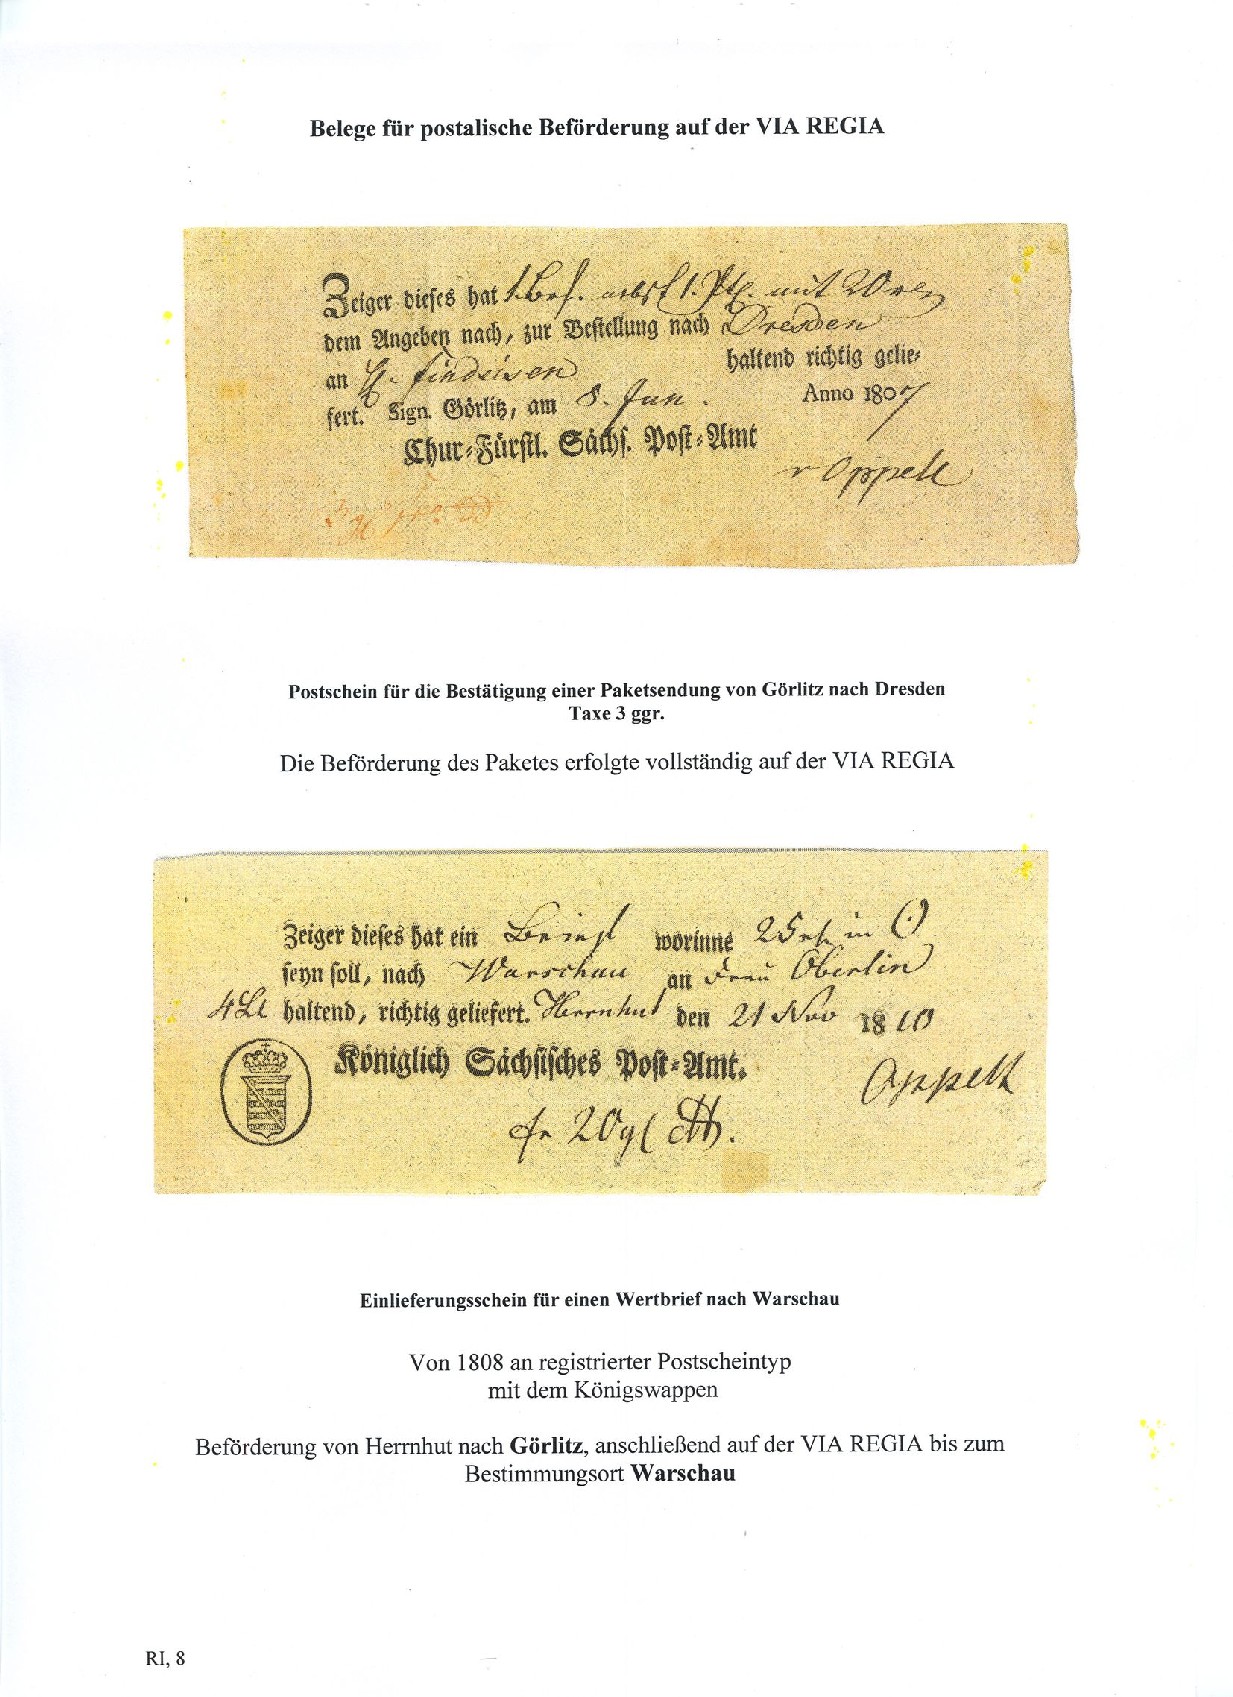 Belege für postalische Beförderung auf der VIA REGIA
Zeiger dieses hat 1. Brf. nebst 1. Pk. mit 20
dem Angeben nach, zur Bestellung nach Dresden
haltend richtig gelie-
an H. Findeisen
fert. Sign. Görlitz, am 8. Jan. Anno 1807
Chur-Fürstl. Sächs. Post-Amt
Appelt
Postschein für die Bestätigung einer Paketsendung von Görlitz nach Dresden
Taxe 3 ggr.
Die Beförderung des Paketes erfolgte vollständig auf der VIA REGIA
Zeiger dieses hat ein Briefl worinne 25 in
seyn soll, nach Warschau an Frau Oberlin
4 Lt haltend, richtig geliefert. Herrnhut den 21 Nov 1810
Königlich Sächsisches Post-Amt.
Appelt
fr 20 gl
Einlieferungsschein für einen Wertbrief nach Warschau
Von 1808 an registrierter Postscheintyp
mit dem Königswappen
Beförderung von Herrnhut nach Görlitz, anschließend auf der VIA REGIA bis zum
Bestimmungsort Warschau
RI, 8